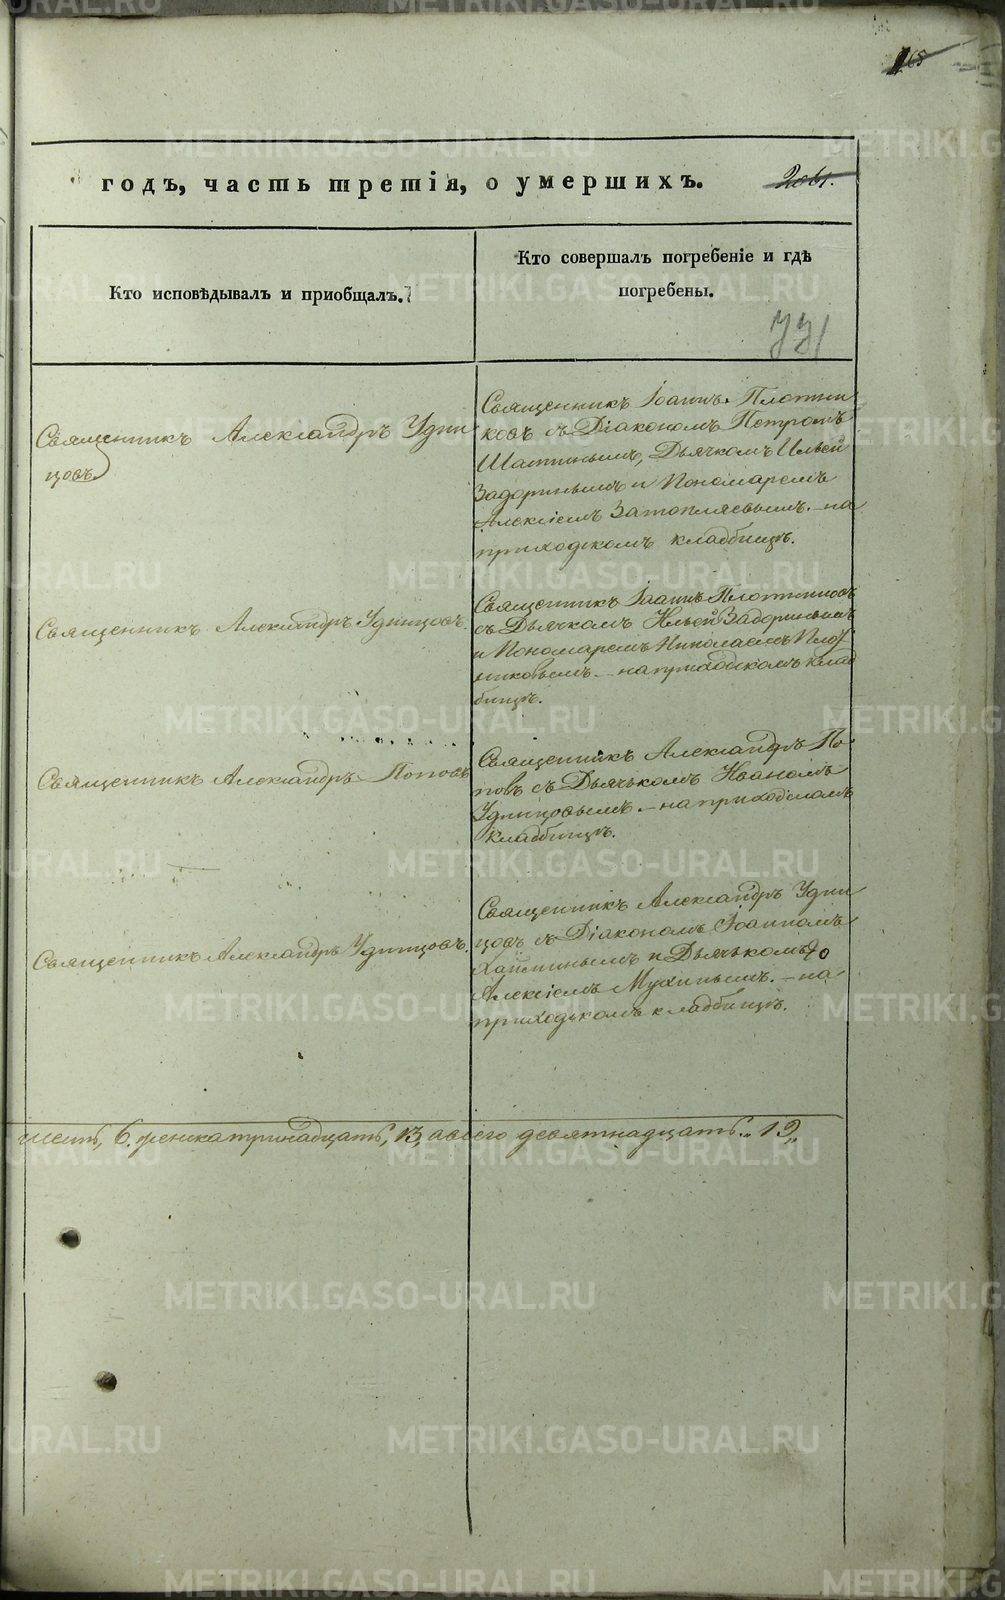 168
годъ, часть третія, о умершихъ.
2061.
Кто исповѣдывалъ и приобщалъ.
Кто совершалъ погребеніе и гдѣ
погребены.
771
Священникъ Александръ Удин
цовъ
Священникъ Іоаннъ Плотни
ковъ съ Діакономъ Петромъ
Дьячкомъ Ильей
Задоринымъ и Пономаремъ
Алексіемъ Затопляевымъ. – на
приходскомъ кладбищѣ.
Священникъ Александръ Удинцовъ.
Священникъ Іоаннъ Плотниковъ
съ Дьячкомъ Ильей Задоринымъ
и Пономаремъ Николаемъ Плот
никовымъ. – на приходскомъ клад
бищѣ.
Священникъ Александръ Поповъ
Священникъ Александръ По
повъ съ Дьячькомъ Иваномъ
Удинцовымъ. – на приходскомъ
кладбищѣ.
Священникъ Александръ Удинцовъ.
Священникъ Александръ Удин
цовъ съ Діакономъ Іоанномъ
и Дьячькомъ
Алексіемъ Мухинымъ. – на
приходскомъ кладбищѣ.
шесть, 6, женска тринадцать, 13, а всего девятнадцать „19„
METRIKI.GASO-URAL.RU